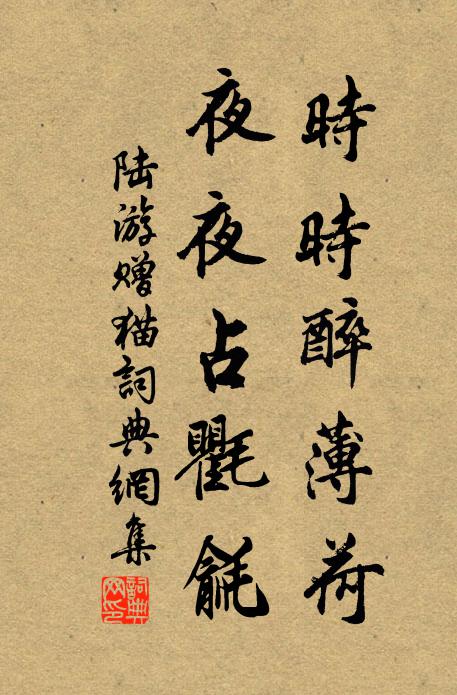 時時醉薄荷
夜夜占氍毹
陸游贈猫詞典網集
詞典网印